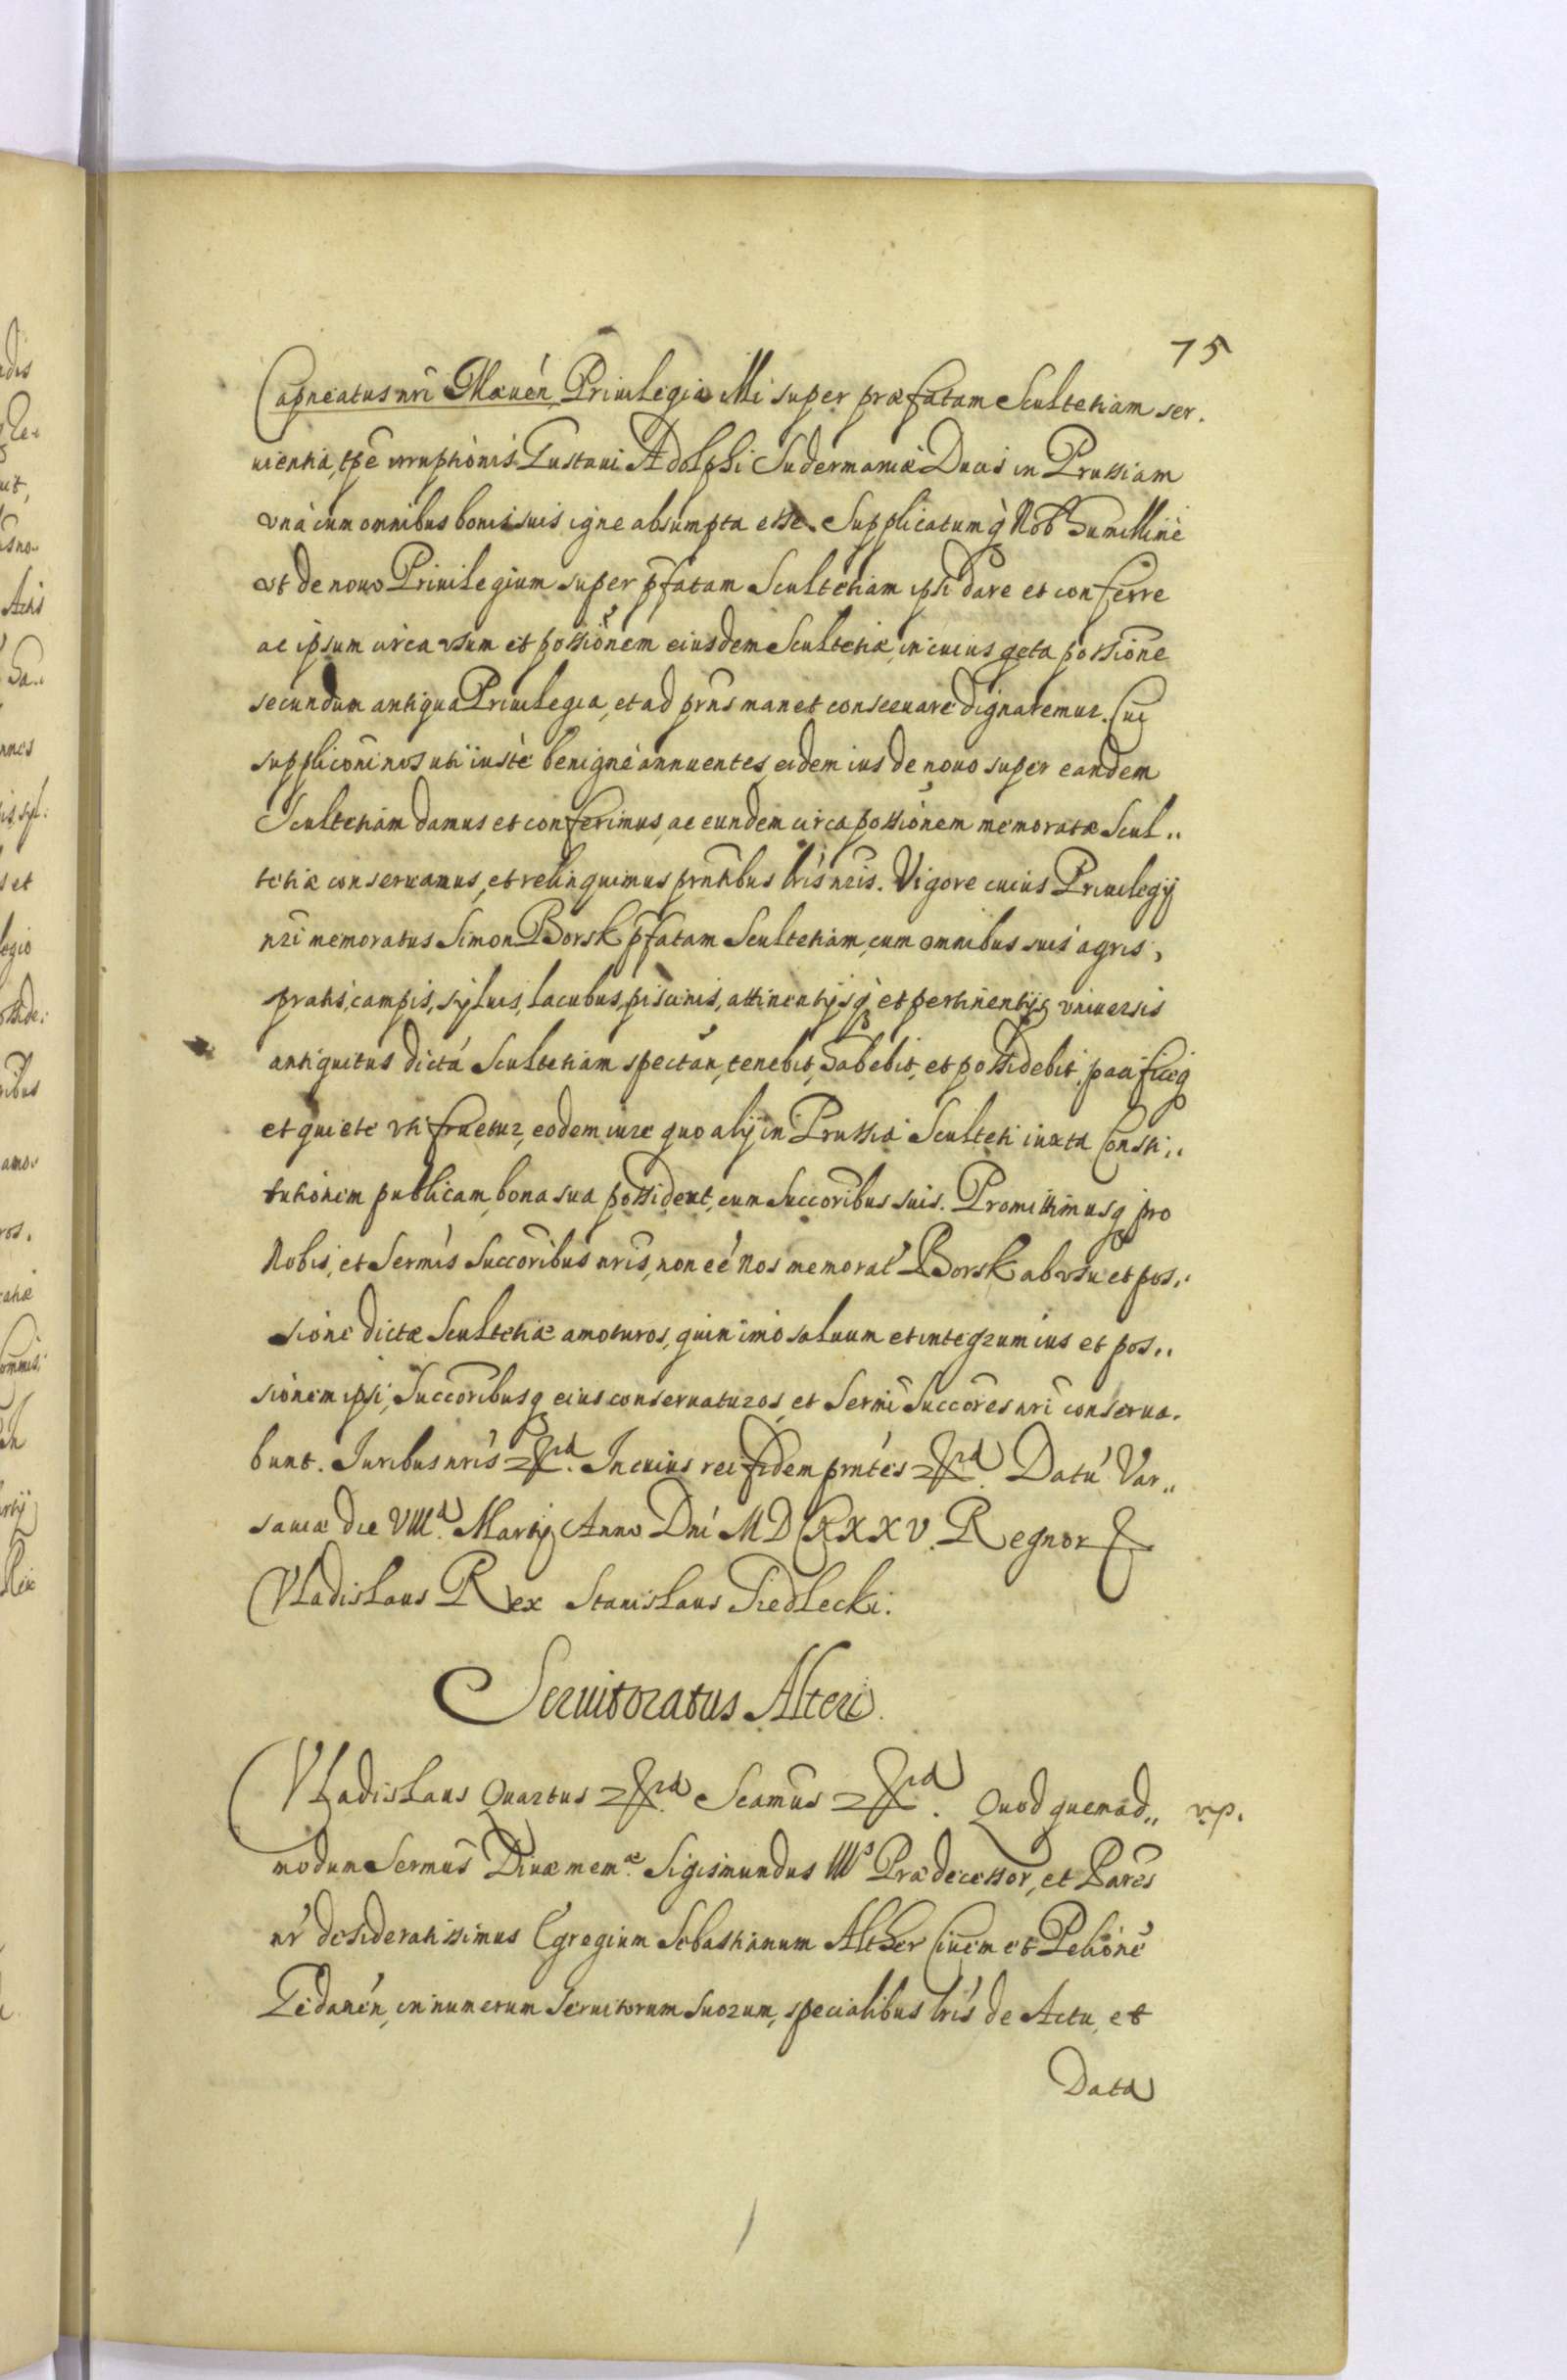 75
Capneatus nri Mæuén, Priuilegia illi super præfatam Scultetiam ser.
uientia, tpe irruptionis Gustaui Adolphi Sudermaniæ Ducis in Prussiam
vna cum omnibus bonis suis igne absumpta esse. Supplicatumq Nob humillimè
vt de nouo Priuilegium super pfatam Scultetiam ipsi dare et conferre
ac ipsum circa vsum et possionem eiusdem Scultetiæ, in cuius qeta possione
secundum antiqua Priuilegia, et ad prns manet conseruare dignaremur. Cui
suppliconi nos uti iustè benignè annuentes, eidem ius de nouo super eandem
Scultetiam damus et conferimus, ac eundem circa possionem memoratæ Scul„
tetiæ conseruamus, et relinquimus prntibus lris nris. Vigore cuius Priuilegij
nri memoratus Simon Borsk pfatam Scultetiam, cum omnibus suis agris,
pratis, campis, syluis, lacubus, piscinis, attinentijsq et pertinentijs vniuersis
antiquitus dictá Scultetiam spectán, tenebit, habebit, et possidebit, pacificeq
et quietè vti fruetur, eodem iure quo alij in Prussia Sculteti iuxta Consti„
tutionem publicam, bona sua possident, cum Succoribus suis. Promittimusq pro
Nobis, et Sermis Succoribus nris, non eé Nos memorat Borsk ab vsu et pos„
sione dictæ Scultetiæ amoturos, quin imò saluum et integrum ius et pos„
sionem ipsi, Succoribusq eius conseruaturos, et Sermi Succores nri conserua.
bunt. Juribus nris &ra. In cuius rei fidem prntes &ra. Datú Var„
sauiæ die VIIIa. Martij Anno Dni MDCXXXV. Regnor &
Vladislaus Rex Stanislaus Siedlecki.
Seruitoratus Alteri.
Vladislaus Quartus &ra Scamus &ra. Quod quemad„
modum Sermus Diuæ memæ. Sigismundus IIIs Prædecessor, et Pares
nr desideratissimus Egregium Sebastianum Alther Ciuem et Pelionè
Gedanén, in numerum Seruitorum suorum, specialibus lris de Actu, et
Data